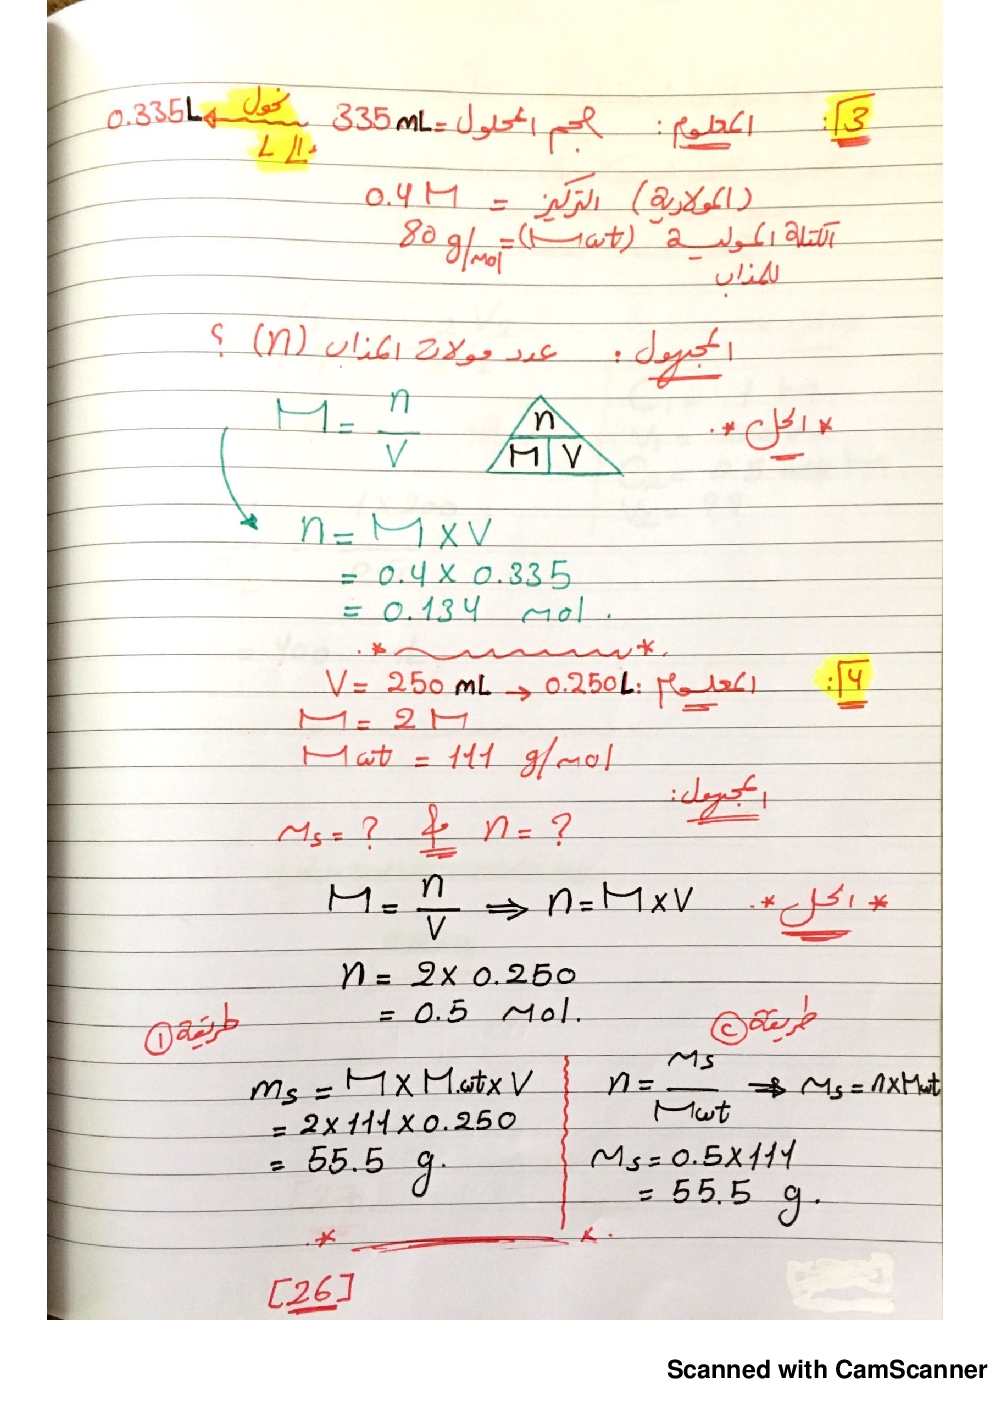 3: المعلوم: حجم المحلول = 335 mL نحول الـ L 0.335L
(المولارية) التركيز = 0.4 M
الكتلة المولية (Mwt) = 80 g/mol
للمذاب
المجهول: عدد مولات المذاب (n) ؟
* الحل *
M = n/V
n
M V
n = M x V
= 0.4 x 0.335
= 0.134 mol.
4: المعلوم: V = 250 mL → 0.250L
M = 2 M
Mwt = 111 g/mol
المجهول:
ms = ? & n = ?
* الحل *
M = n/V ⇒ n = M x V
n = 2 x 0.250
= 0.5 mol.
طريقة ①
ms = M x Mwt x V
= 2 x 111 x 0.250
= 55.5 g.
طريقة ②
n = ms/Mwt ⇒ ms = n x Mwt
ms = 0.5 x 111
= 55.5 g.
[26]
Scanned with CamScanner